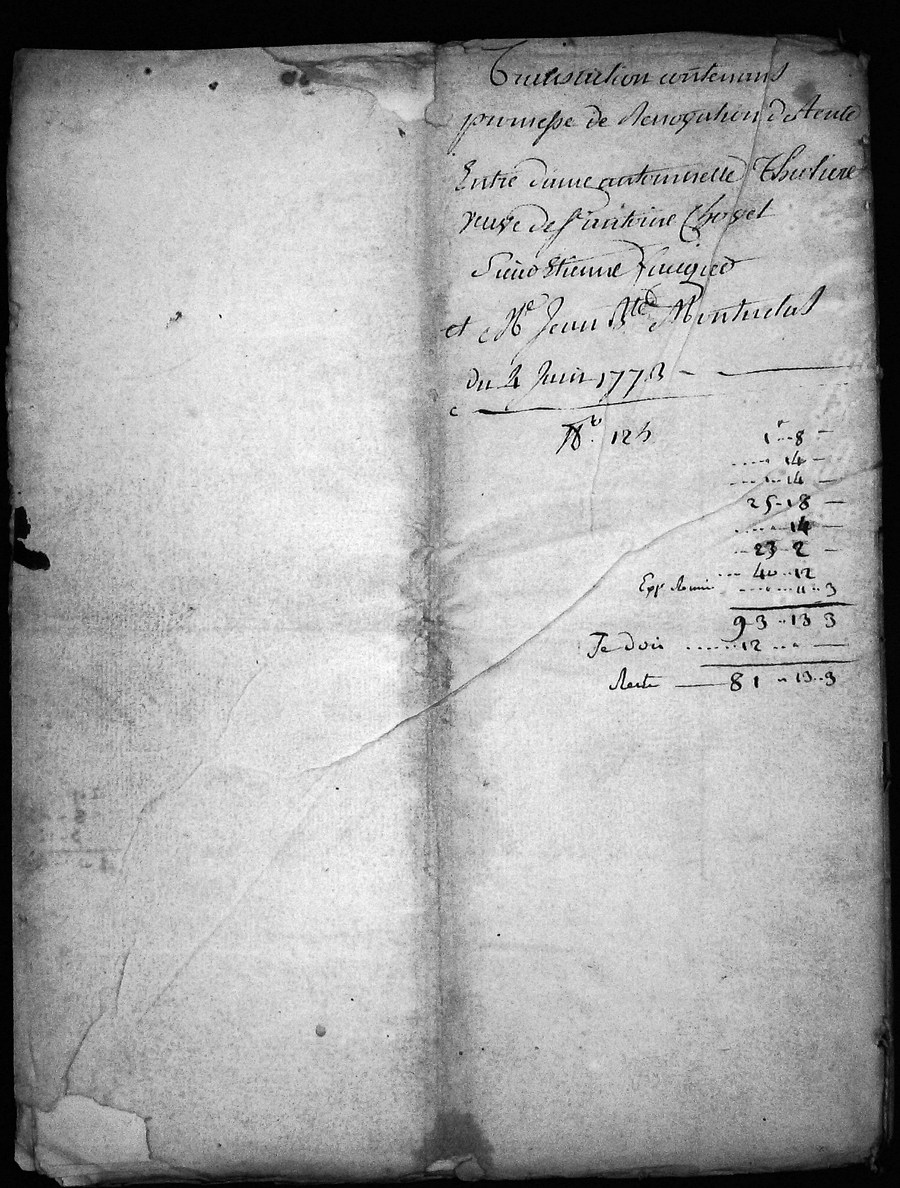 Transaction contenant
promesse de de Rente
Entre dame antoinette Thuliere
veuve de Sr antoine Chovet
Sieur Etienne
et Me Jean Bte Montuclat
du 4 Juin 1773
No. 125
1"..8 -
..... 14 -
..... 14 -
25-18 -
..... 14 -
..23 - 2 -
... 40..12
Exp ..... 11..3
93..13 3
Je dois ......12 ... -
Reste —81 "13..3